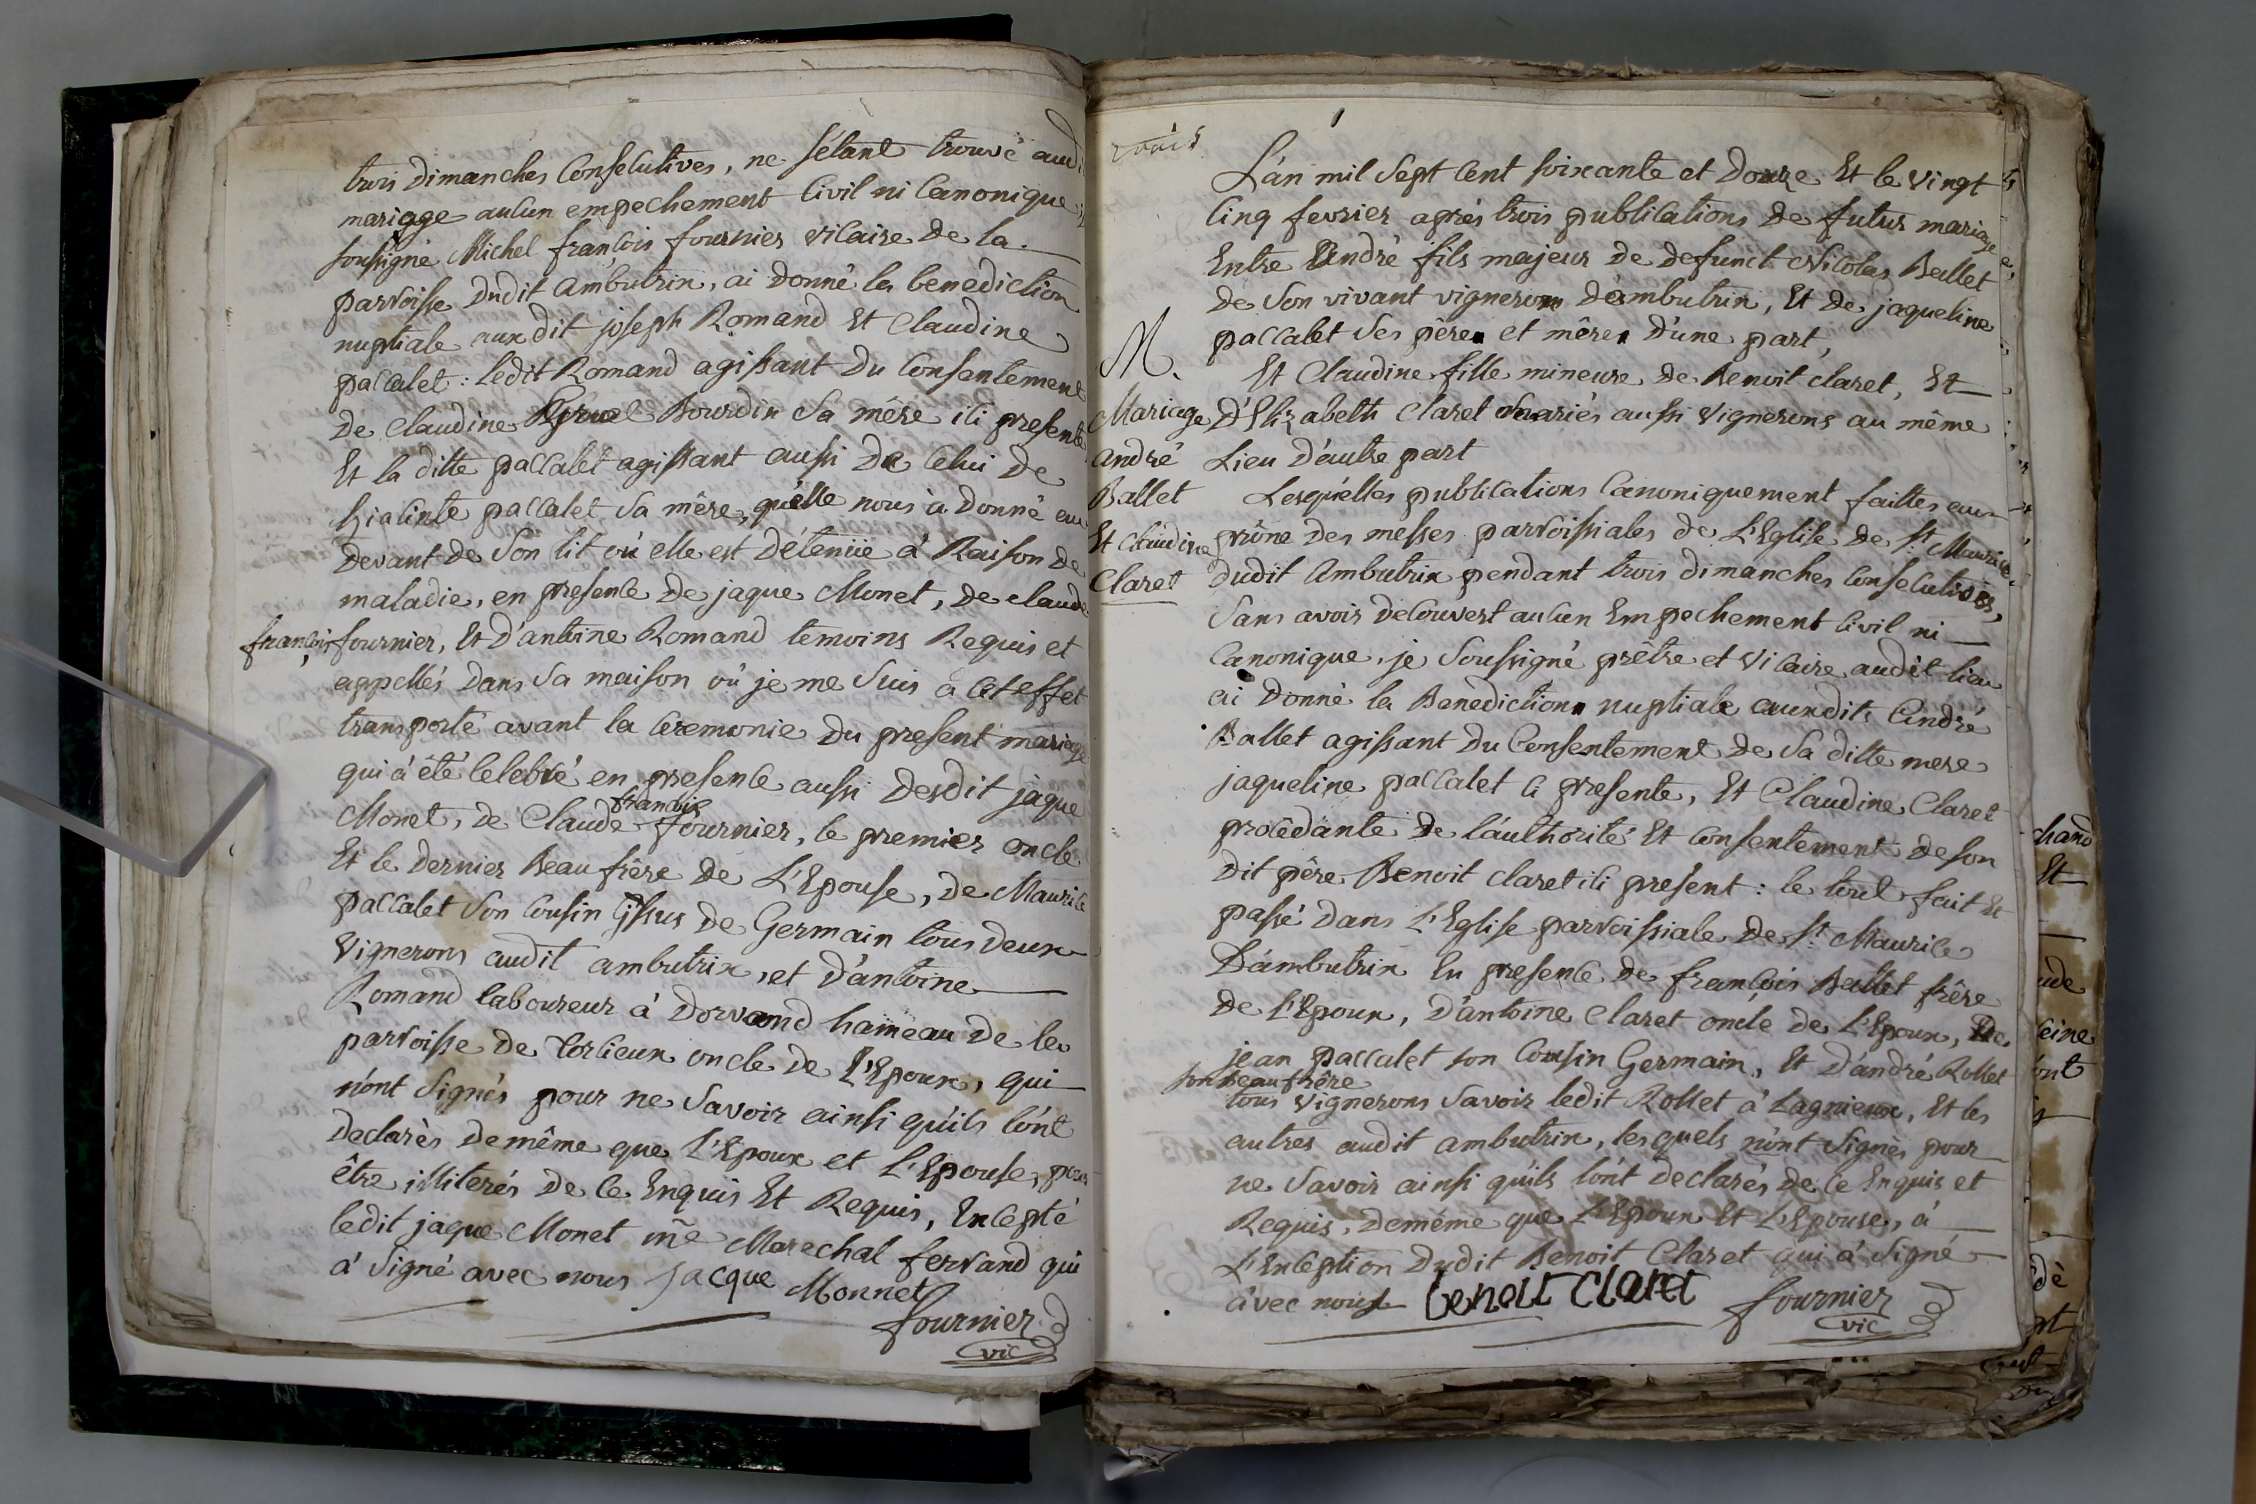 trois dimanches Consecutives, ne s'étant trouvé aud
mariage aucun empechement Civil ni Canonique
soussigné Michel françois fournier vicaire de la
parroisse dudit ambutrix, ai donné la benediction
nuptiale aux dit joseph Romand Et Claudine
paccalet : ledit Romand agissant du Consentement
de Claudine Bourdin Sa mère ici presente
Et la ditte paccalet agissant aussi de Celui de
hiacinte paccalet Sa mère, qu'elle nous à donné au
devant de Son lit où elle est détenüe à Raison de
maladie, en presence de jaque Monet, de claude
françois fournier, Et d'antoine Romand temoins Requis et
appellés dans Sa maison où je me Suis à Cet effet
transporté avant la Ceremonie du present mariage
qui à été Celebré en presence aussi desdit jaque
françois
Monet, de Claude fournier, le premier oncle
Et le dernier Beau frère de L'Epouse, de Maurice
paccalet Son Cousin issus de Germain tous deux
Vignerons audit ambutrix, et d'antoine
Romand laboureur à dorvand hameau de la
parroisse de torcieux oncle de L'Epoux, qui
n'ont Signés pour ne Savoir ainsi qu'ils l'ont
declarés de même que L'Epoux et L'Epouse, pour
être illiterés de ce Enquis Et Requis, Excepté
ledit jaque Monet me Marechal ferrand qui
à Signé avec nous jacque Monnet
fournier
vic
L'an mil Sept Cent soixante et douze Et le vingt
Cinq fevrier après trois publications de futur mariage
Entre André fils majeur de defunct Nicolas Ballet
de Son vivant vigneron d'ambutrix, Et de jaqueline
paccalet Ses père et mère d'une part,
Et Claudine fille mineure de Benoit claret, Et
D'Elizabeth Claret mariés aussi Vignerons au même
Lieu d'autre part
M.
Mariage
andré
Ballet
Et Claudine
Claret
Lesquelles publications Canoniquement faittes aux
prône des messes parroissiales de L'Eglise de St Maurice
dudit Ambutrix pendant trois dimanches Consecutives,
Sans avoir decouvert aucun Empechement Civil ni
Canonique, je Soussigné prêtre et Vicaire audit lieu
ai donné la Benediction nuptiale auxdits André
Ballet agissant du Consentement de Sa ditte mere
jaqueline paccalet ci presente, Et Claudine Claret
procédante de l'authorité Et Consentement de son
dit père Benoit claret ici présent : le tout fait Et
passé dans L'Eglise parroissiale de St Maurice
D'ambutrix En presence de françois Ballet frère
de L'Epoux, d'antoine Claret oncle de L'Epoux, de
jean paccalet son Cousin Germain, Et d'andré Rollet
son beau frère
tous Vignerons Savoir ledit Rollet à Lagnieux, Et les
autres audit ambutrix, lesquels n'ont Signés pour
ne Savoir ainsi qu'ils l'ont declarés de ce Enquis et
Requis, de même que L'Epoux Et L'Epouse, à
L'Exception dudit Benoit Claret qui à Signé
avec nous benoit claret fournier
vic